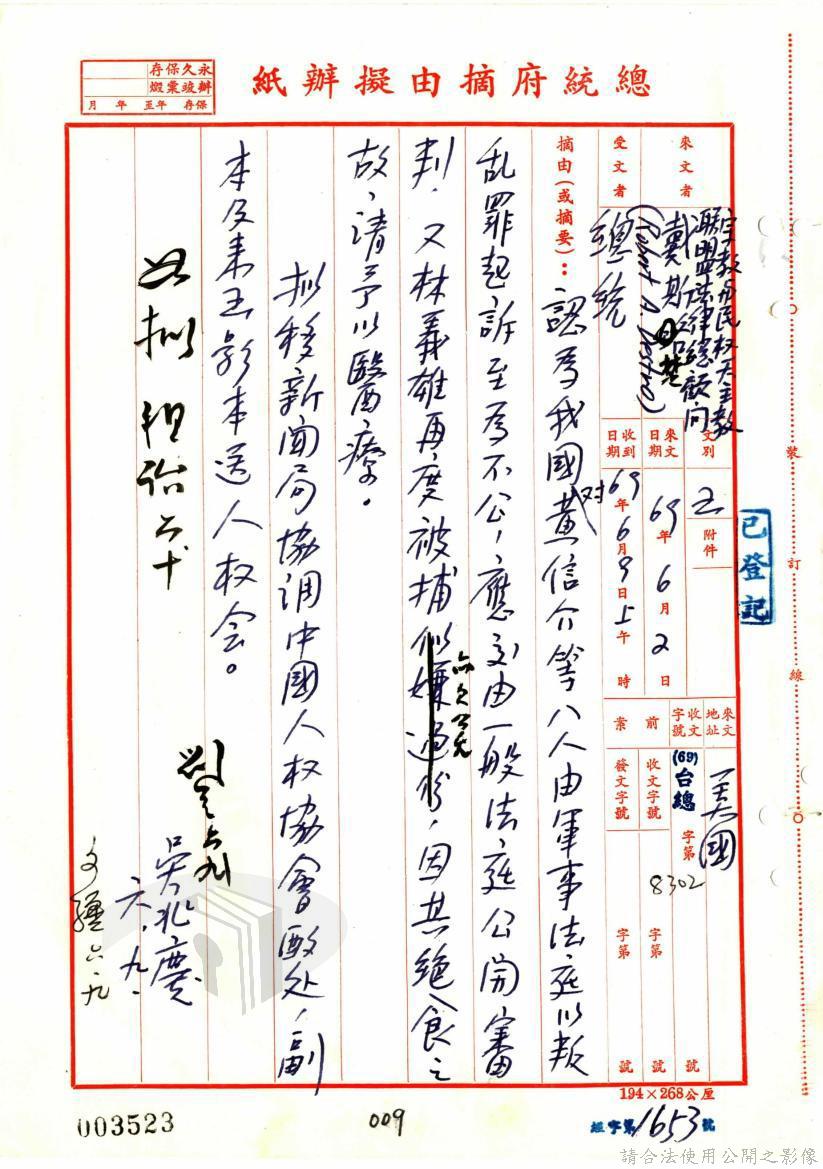 總統府摘由擬辦紙
永久保存
辦竣彙繳
保存 年至 年 月
來文者
宗教與民权天主教
聯盟法律總顧问
戴斯
(Robert A. Destro)
受文者
總統
文別
函
附件
來文日期
69年6月2日
收到日期
69年6月9日上午 時
來文地址
美國
收文字號
(69)台總 字第 8302 號
前案
收文字號
字第 號
發文字號
字第 號
摘由(或摘要):
認為我國对黃信介等八人由軍事法庭以叛
乱罪起訴至為不公,應交由一般法庭公開審
判,又林義雄再度被捕似嫌過份,因其絕食之
故,請予以醫療。
擬移新聞局協調中國人权協會酌处,副
本及來函影本送人权会。
如擬
六、九、
六、九
已登記
裝訂線
194×268公厘
003523
009
字第1653號
請合法使用公開之影像